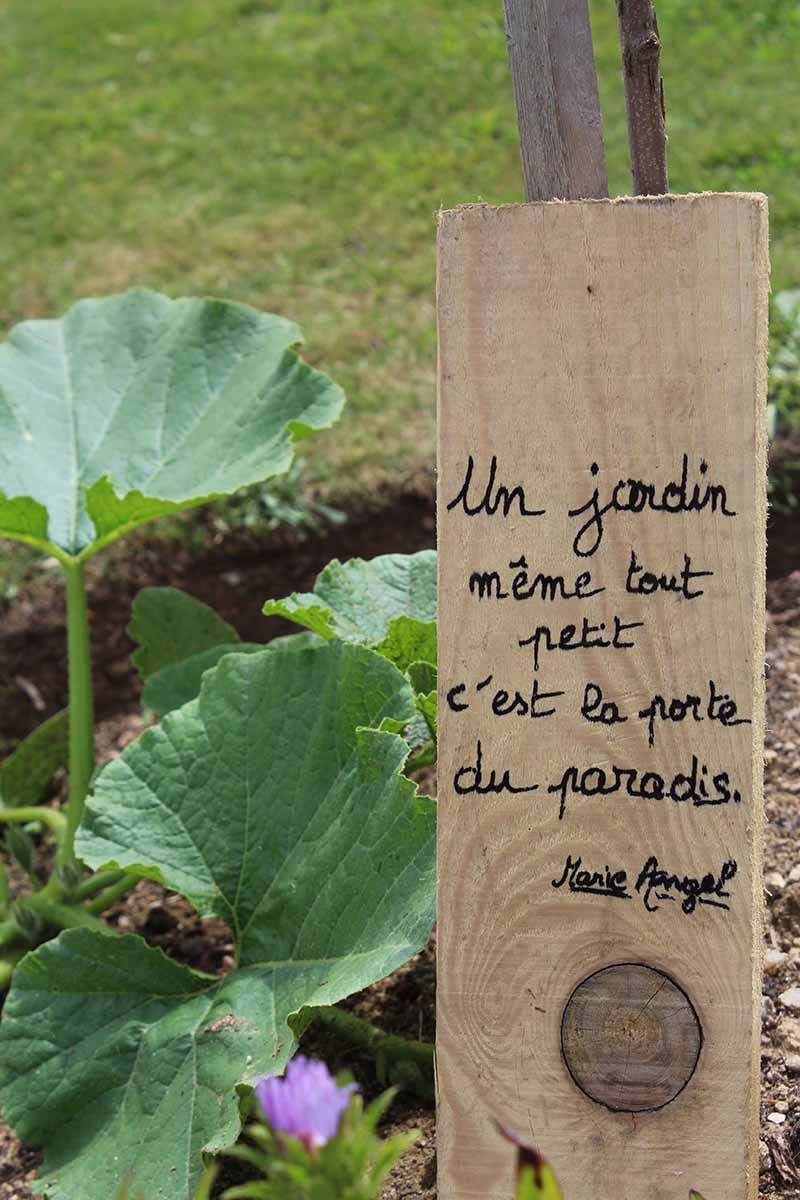 Un jardin
même tout
petit
c'est la porte
du paradis.
Marie Angel